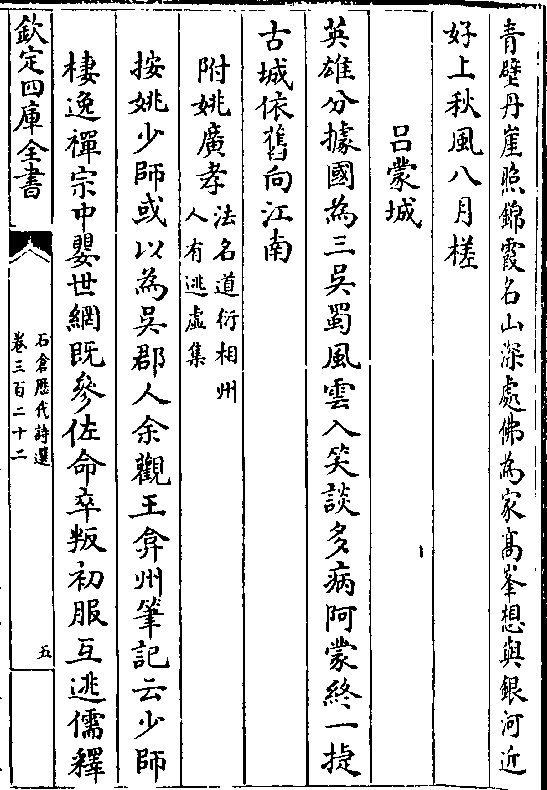 青壁丹崖照錦霞名山深處佛為家髙峯想與銀河近
好上秋風八月槎
吕蒙城
英雄分據國為三吳蜀風雲入笑談多病阿蒙終一捷
古城依舊向江南
附姚廣孝
法名道衍相州
人有逃虚集
按姚少師或以為吳郡人余觀王弇州筆記云少師
棲逸禪宗中嬰世網既參佐命卒叛初服互逃儒釋
欽定四庫全書
石倉歴代詩選
卷三百二十二
五